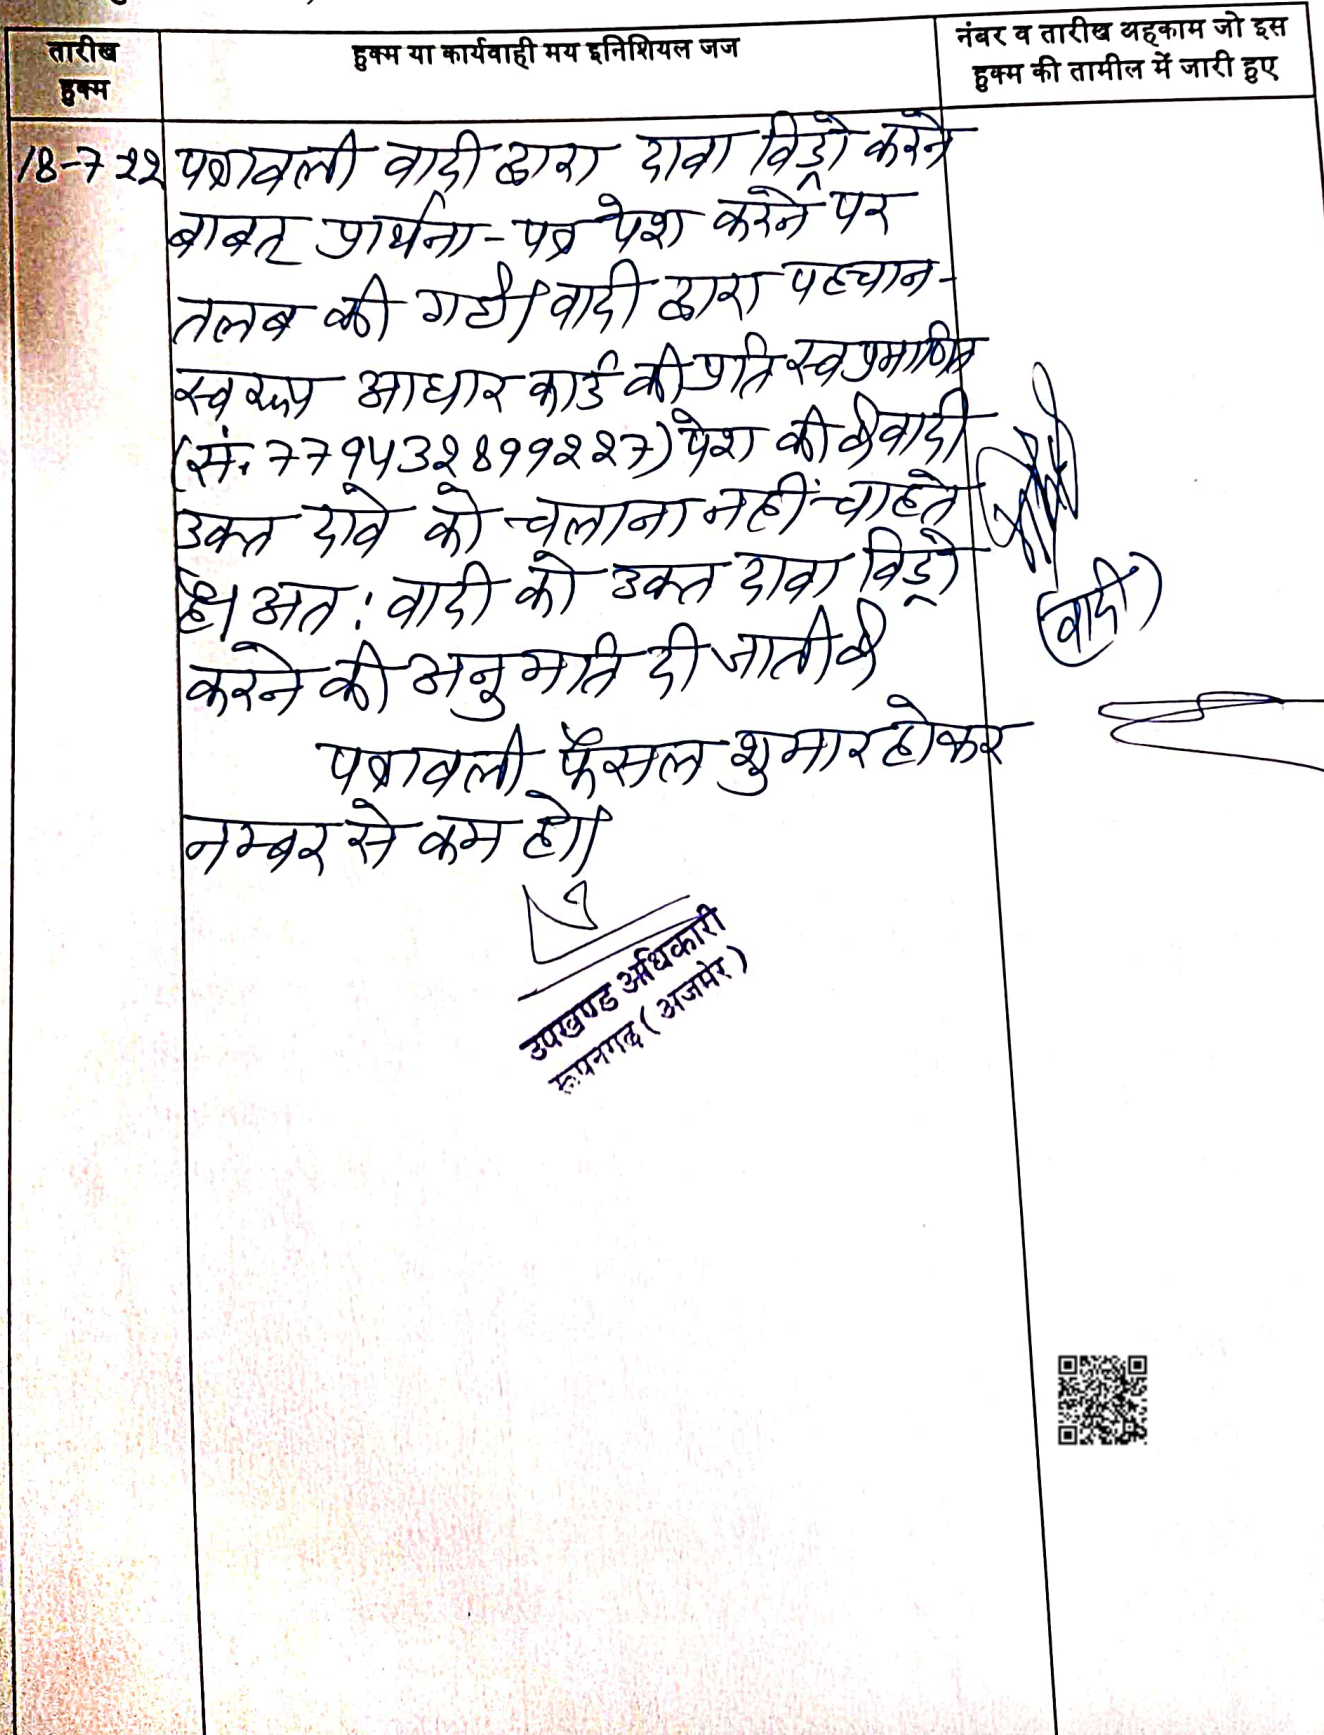 तारीख
हुक्म
हुक्म या कार्यवाही मय इनिशियल जज
नंबर व तारीख अहकाम जो इस
हुक्म की तामील में जारी हुए
18-7-22
पत्रावली वादी द्वारा दावा विड्रो करने
बाबत् प्रार्थना-पत्र पेश करने पर
तलब की गई। वादी द्वारा पहचान-
स्वरूप आधार कार्ड की प्रति स्वप्रमाणित
(सं. 779432899227) पेश की है वादी
उक्त दावे को चलाना नहीं चाहते
है। अत: वादी को उक्त दावा विड्रो
करने की अनुमति दी जाती है
पत्रावली फैसल शुमार होकर
नम्बर से कम हो।
(वादी)
उपखण्ड अधिकारी
रूपनगढ़ (अजमेर)